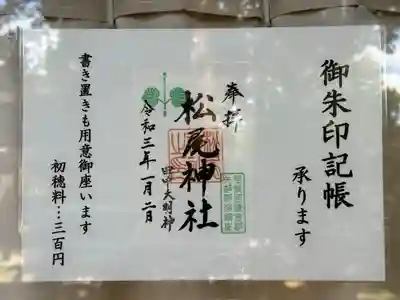 御朱印記帳
承ります
奉拝
松尾神社
田中大明神
令和三年一月二日
書き置きも用意御座います
初穂料…三百円